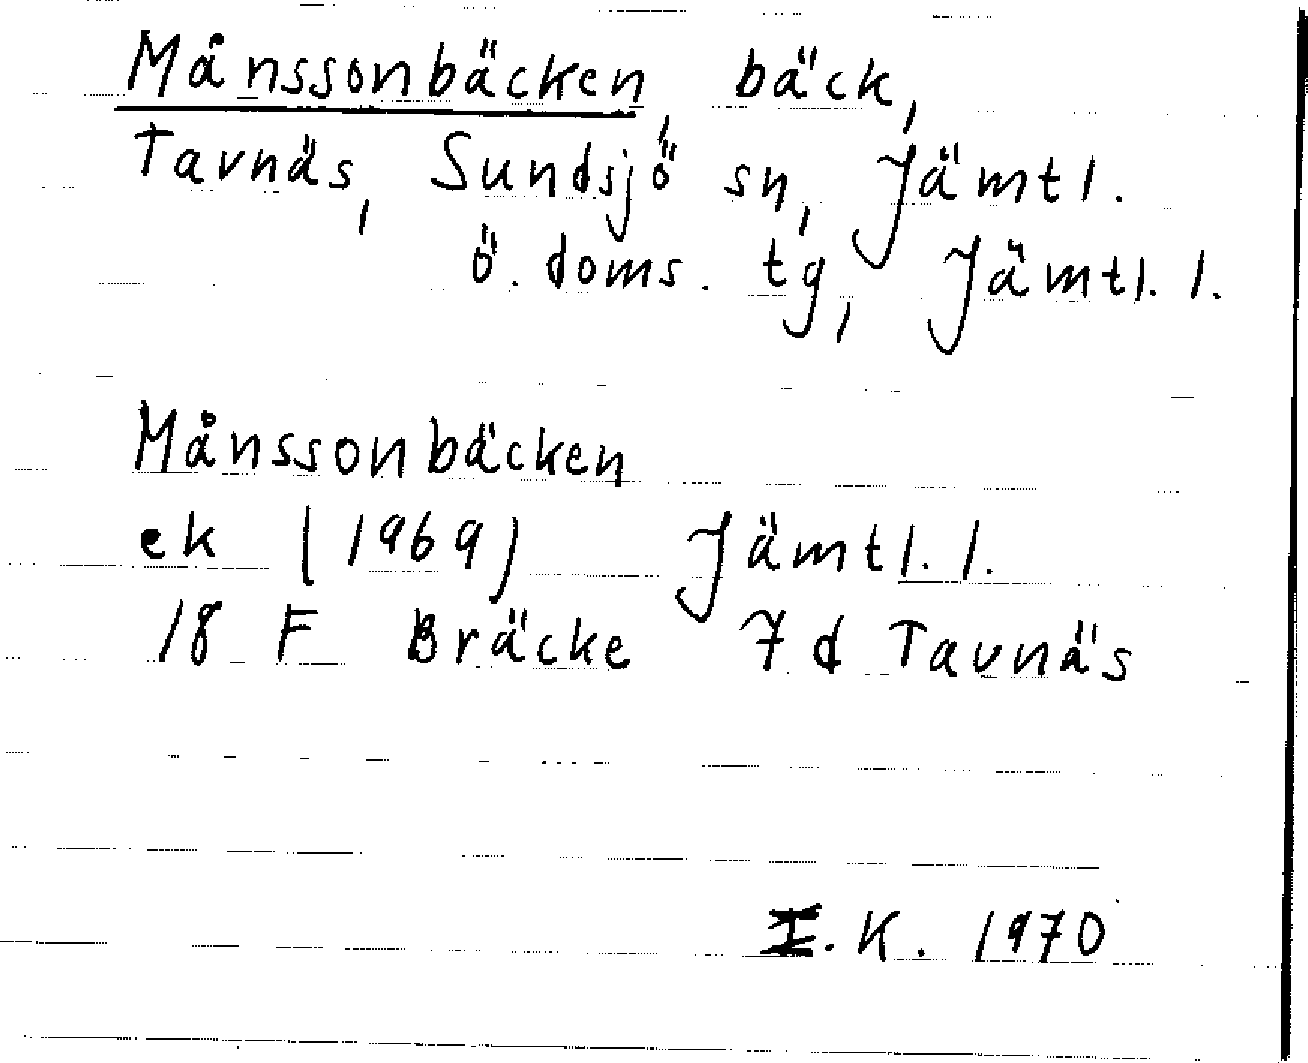 Månssonbäcken, bäck,
Tavnäs, Sundsjö sn, Jämtl.
ö. doms. tg, Jämtl. l.
Månssonbäcken
ek (1969) Jämtl. l.
18 F Bräcke 7 d Tavnäs
I. K. 1970